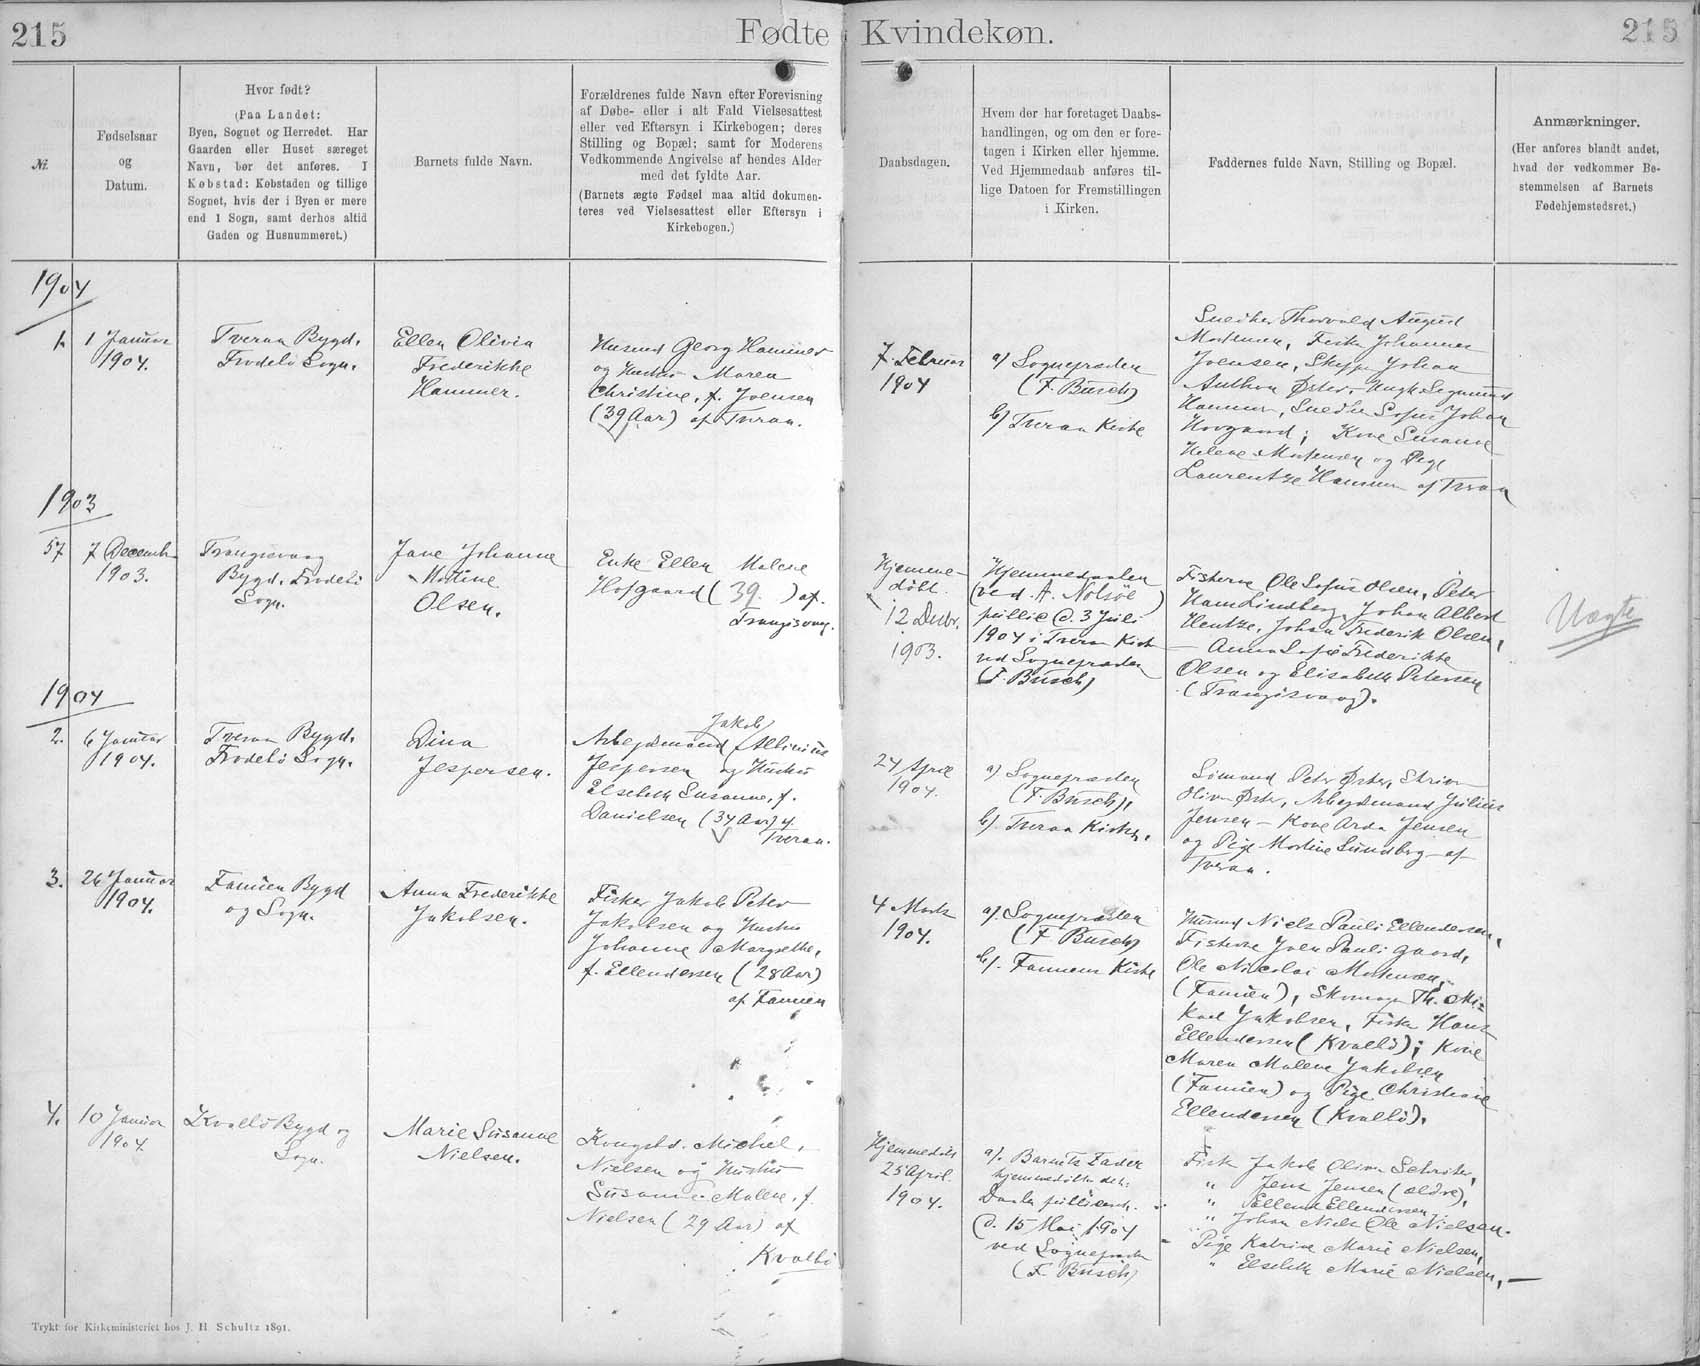 215
Fødte
Kvindekøn.
215
Nr.
Fødselsaar
og
Datum.
Hvor født?
(Paa Landet:
Byen, Sognet og Herredet. Har
Gaarden eller Huset særeget
Navn, bør det anføres. I
Købstad: Købstaden og tillige
Sognet, hvis der i Byen er mere
end 1 Sogn, samt derhos altid
Gaden og Husnummeret.)
Barnets fulde Navn.
Forældrenes fulde Navn efter Forevisning
af Døbe- eller i alt Fald Vielsesattest
eller ved Eftersyn i Kirkebogen; deres
Stilling og Bopæl; samt for Moderens
Vedkommende Angivelse af hendes Alder
med det fyldte Aar.
(Barnets ægte Fødsel maa altid dokumen-
teres ved Vielsesattest eller Eftersyn i
Kirkebogen.)
Daabsdagen.
Hvem der har foretaget Daabs-
handlingen, og om den er fore-
tagen i Kirken eller hjemme.
Ved Hjemmedaab anføres til-
lige Datoen for Fremstillingen
i Kirken.
Faddernes fulde Navn, Stilling og Bopæl.
Anmærkninger.
(Her anføres blandt andet,
hvad der vedkommer Be-
stemmelsen af Barnets
Fødehjemstedsret.)
1904
1.
1 Januar
1904.
Tveraa Bygd,
Frodebø Sogn.
Ellen Olivia
Frederikke
Hammer.
Husmd Georg Hammer
og Hustru Maren
Christine, f. Joensen
(39 Aar) af Tveraa.
7. Februar
1904
a) Sognepræsten
(F. Busch)
b) Tveraa Kirke
Snedker Thorvald August
Mortensen, Fisker Johannes
Joensen, Johan
Anthon Øster, Ungk. Sogmund
Hammer, Snedker Sofus Johan
Hovgaard; Kone Susanne
Helene Mortensen og Pige
Laurentze Hammer af Tveraa
1903
57
7 Decembr
1903.
Trangisvaag
Bygd, Frodebø
Sogn.
Jane Johanne
Martine
Olsen.
Enke Ellen Malene
Hofgaard (39 ) af
Trangisvaag.
Hjemme-
døbt
12 Decbr.
1903.
Hjemmedaaben
(ved A. Nolsøe)
public. d. 3 Juli
1904 i Tveraa Kirke
ved Sognepræsten
(F. Busch)
Fiskerne Ole Sofus Olsen, Peter
Hans Lindberg, Johan Albert
Hentze, Johan Frederik Olsen,
— Anna Sofie Frederikke
Olsen og Elisabeth Petersen
(Trangisvaag).
Uægte
1904
2.
6 Januar
1904.
Tveraa Bygd,
Frodebø Sogn.
Dina
Jespersen.
Jakob
Arbejdsmand Albinus
Jespersen og Hustru
Elsebeth Susanne, f.
Danielsen (34 Aar) af
Tveraa.
24 April
1904.
a) Sognepræsten
(F. Busch),
b). Tveraa Kirke.
Sømand Peter Øster,
Oliver Øster, Arbejdsmand Julius
Jensen — Kone Arda Jensen
og Pige Martine Lundberg af
Tveraa.
3.
26 Januar
1904.
Famien Bygd
og Sogn.
Anna Frederikke
Jakobsen.
Fisker Jakob Peter
Jakobsen og Hustru
Johanne Margrethe,
f. Ellendersen (28 Aar)
af Famien
4 Marts
1904.
a). Sognepræsten
(F. Busch)
b). Famiens Kirke
Husmd Niels Pauli Ellendersen,
Fiskerne Joen Pauli Gaard,
Ole Nicolai Mortensen,
(Famien), Skomager Th. Mi-
kael Jakobsen, Fisker Hans
Ellendersen (Kvalbø); Kone
Maren Malene Jakobsen
(Famien) og Pige Christiane
Ellendersen (Kvalbø).
4.
10 Januar
1904
Kvalbø Bygd og
Sogn.
Marie Susanne
Nielsen.
Kongsbd. Michel
Nielsen og Hustru
Susanne Malene, f.
Nielsen (29 Aar) af
Kvalbø
Hjemmedøbt
25 April.
1904.
a). Barnets Fader
hjemmedøbte det;
Daaben publiceret
d. 15 Mai 1904
ved Sognepræsten
(F. Busch)
Fisker Jakob Oliver Schrøter,
" Jens Jensen (ældre),
" Ellend Ellendersen,
" Johan Niels Ole Nielsen.
Pige Katrine Marie Nielsen,
" Elsebeth Marie Nielsen, —
Trykt for Kirkeministeriet hos J. H. Schultz 1891.